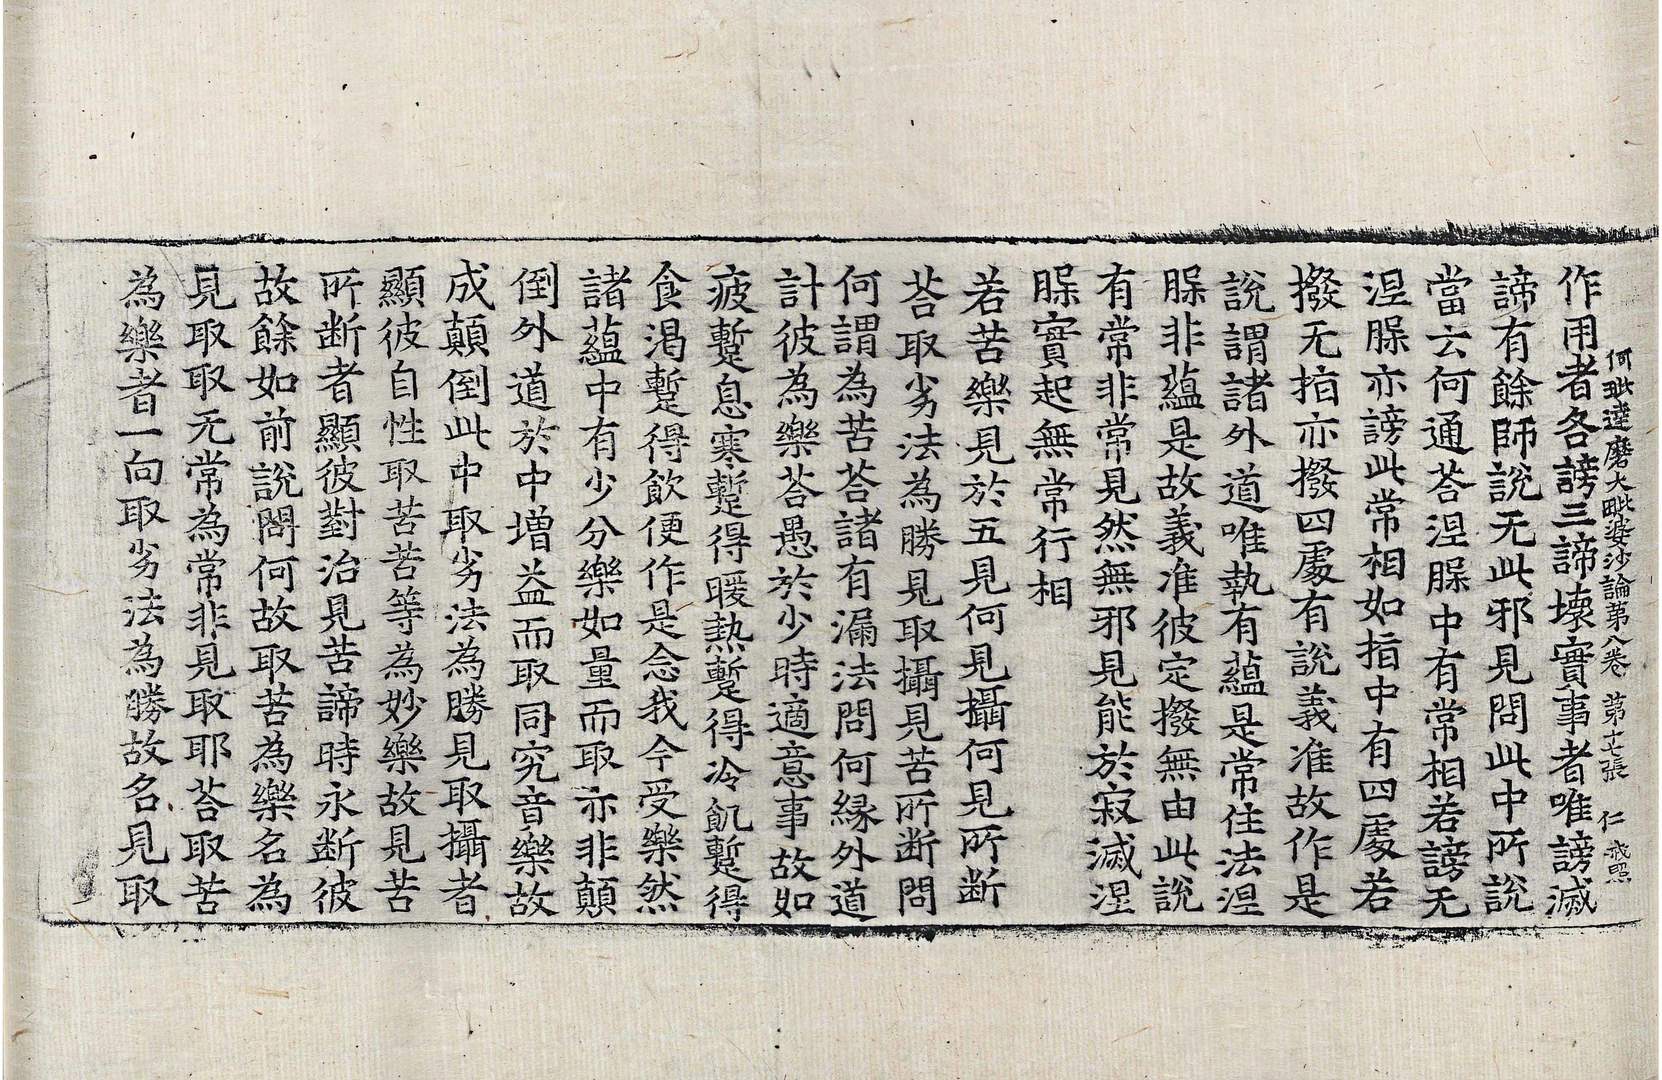 阿毗達磨大毗婆沙論第八卷 第十七張 仁
作用者各謗三諦壞實事者唯謗滅
諦有餘師說无此邪見問此中所說
當云何通荅涅槃中有常相若謗无
涅槃亦謗此常相如指中有四處若
撥无指亦撥四處有說義准故作是
說謂諸外道唯執有蘊是常住法涅
槃非蘊是故義准彼定撥無由此說
有常非常見然無邪見能於寂滅涅
槃實起無常行相
若苦樂見於五見何見攝何見所断
荅取劣法為勝見取攝見苦所断問
何謂為苦荅諸有漏法問何縁外道
計彼為樂荅愚於少時適意事故如
疲蹔息寒蹔得暖熱蹔得冷飢蹔得
食渴蹔得飲便作是念我今受樂然
諸蘊中有少分樂如量而取亦非顛
倒外道於中増益而取同究竟樂故
成顛倒此中取劣法為勝見取攝者
顯彼自性取苦苦等為妙樂故見苦
所断者顯彼對治見苦諦時永断彼
故餘如前說問何故取苦為樂名為
見取取无常為常非見取耶荅取苦
為樂者一向取劣法為勝故名見取